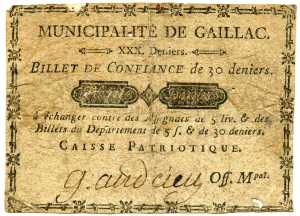 MUNICIPALITÉ DE GAILLAC.
XXX. Deniers.
BILLET DE CONFIANCE de 30 deniers.
à échanger contre des Assignats de 5 liv. & des
Billets du Département de 5 s. & de 30 deniers.
CAISSE PATRIOTIQUE.
Off. Mpal.